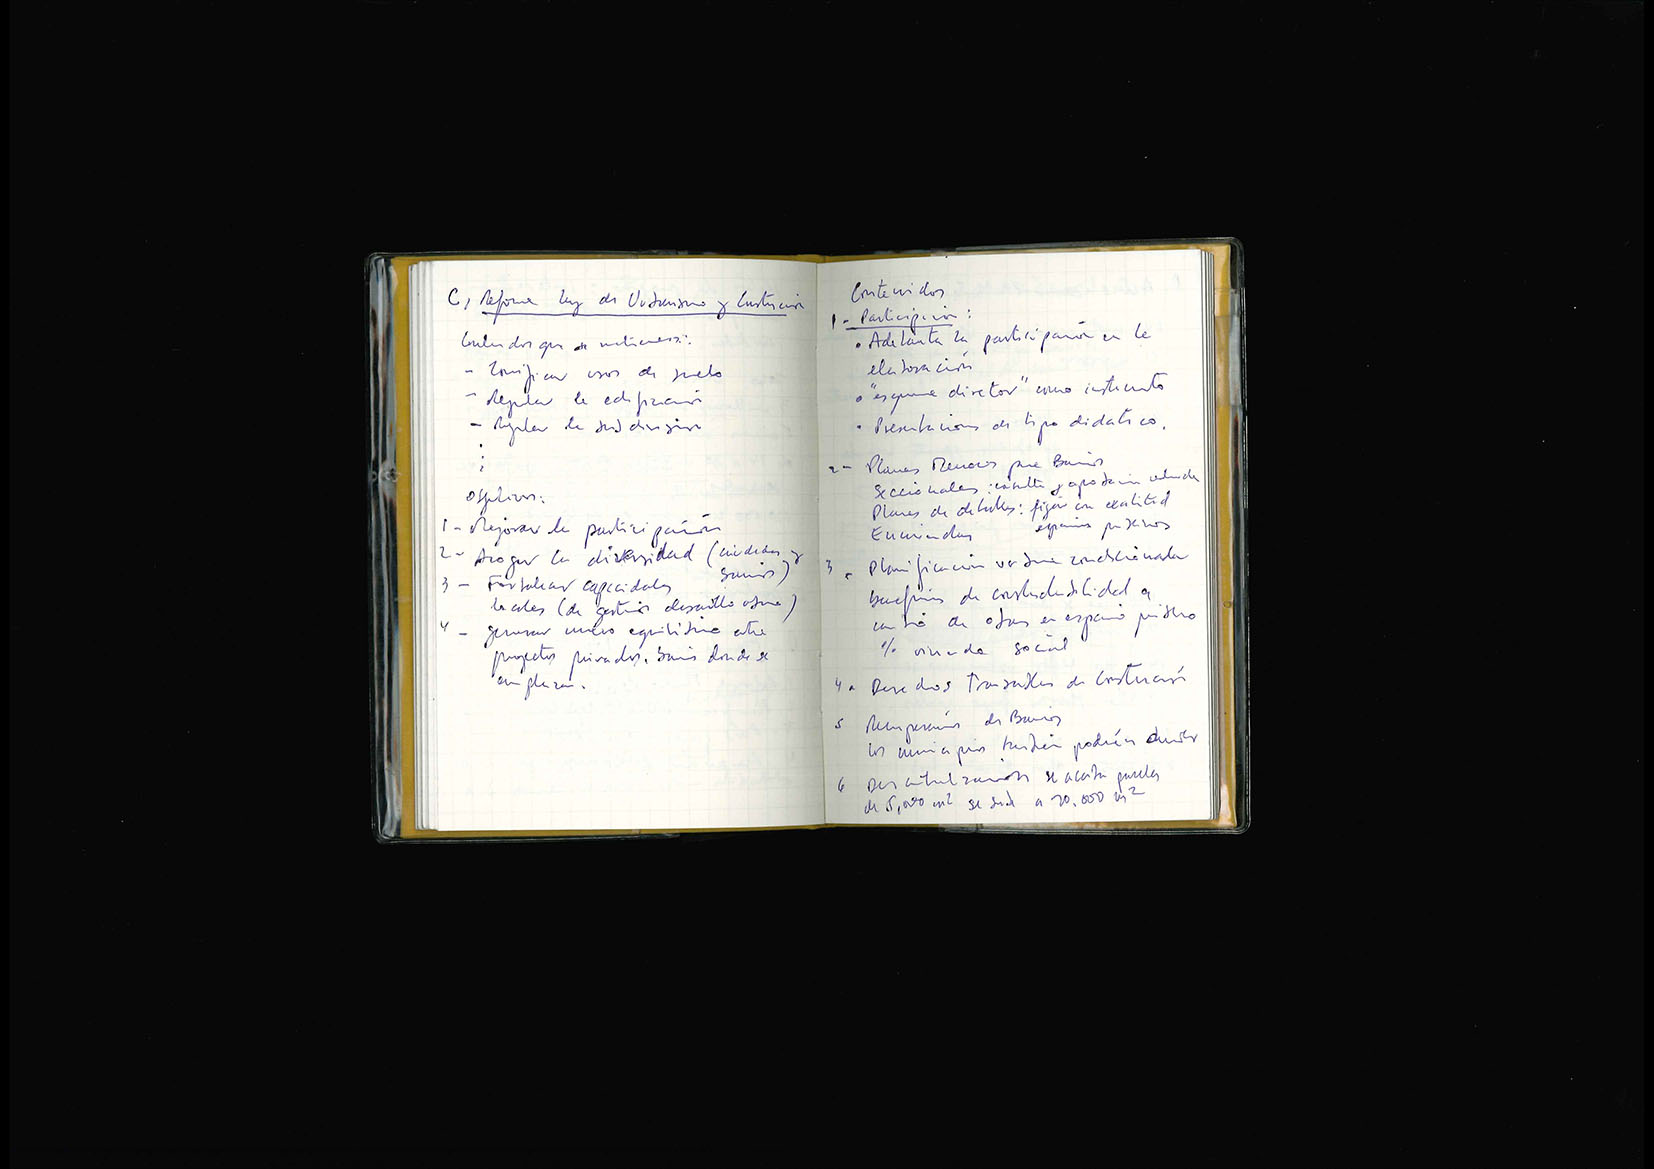 C, Reforma Ley de Urbanismo y Construcción
Contenidos que se
- Zonificar usos de suelo
- Regular la edificación
- Regular la subdivisión
Objetivos:
1 - Mejorar la participación
2 - Acoger la diversidad (ciudades y
barrios)
3 - Fortalecer capacidades
locales (de gestión desarrollo urbano)
4 - generar nuevo equilibrio entre
proyectos privados. barrios donde se
emplazan.
Contenidos
1 - Participación:
• Adelanta la participación en la
elaboración
• "esquema director" como instrumento
• Presentaciones de tipo didático.
2 - Planes para Barrios
Seccionales: consulta y aprobación
Planes de detalles: fijan con exactitud
Enmiendas espacios públicos
3. Planificación urbana condicionada
beneficios de constructibilidad a
cambio de obras en espacio público
% vivienda social
4. Derechos Transables de Construcción
5 Recuperación de Barrios
los municipios también podrán
6 se acota
de 5,000 m² se sube a 20.000 m²